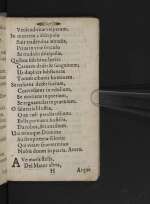 Venit ad vitæ vesperam.
In mortem a discipulo
Suis tradendus æmulis,
Prius in vitæ ferculo
Se tradidit discipulis.
Quibus sub bina specie
Carnem dedit & sanguinem;
Ut duplicis substantiæ
Totum cibaret hominem.
Se nascens dedit socium,
Convescens in edulium,
Se moriens in pretium,
Se regnans dat in præmium.
O salutaris hostia,
Quæ cœli pandis ostium,
Bella premunt hostilia,
Da robur, fer auxilium.
Uni trinoque Domino
Sit sempiterna gloria:
Qui vitam sine termino
Nobis donet in patria. Amen.
Ave maris stella,
Dei Mater alma,
H Atque